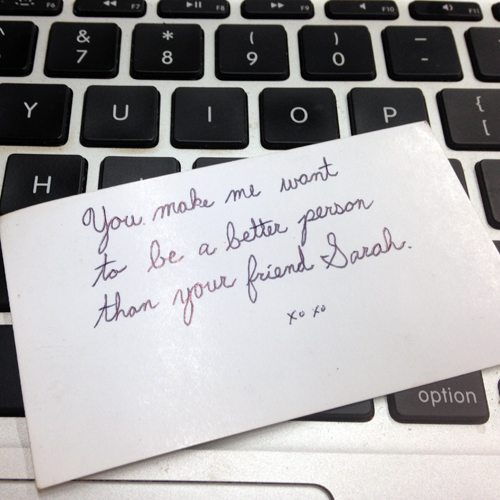 F6 F7 F8 F9 F10 F11
& * ( ) _
7 8 9 0 -
Y U I O P { [
H
You make me want
to be a better person
than your friend Sarah.
xo xo
option